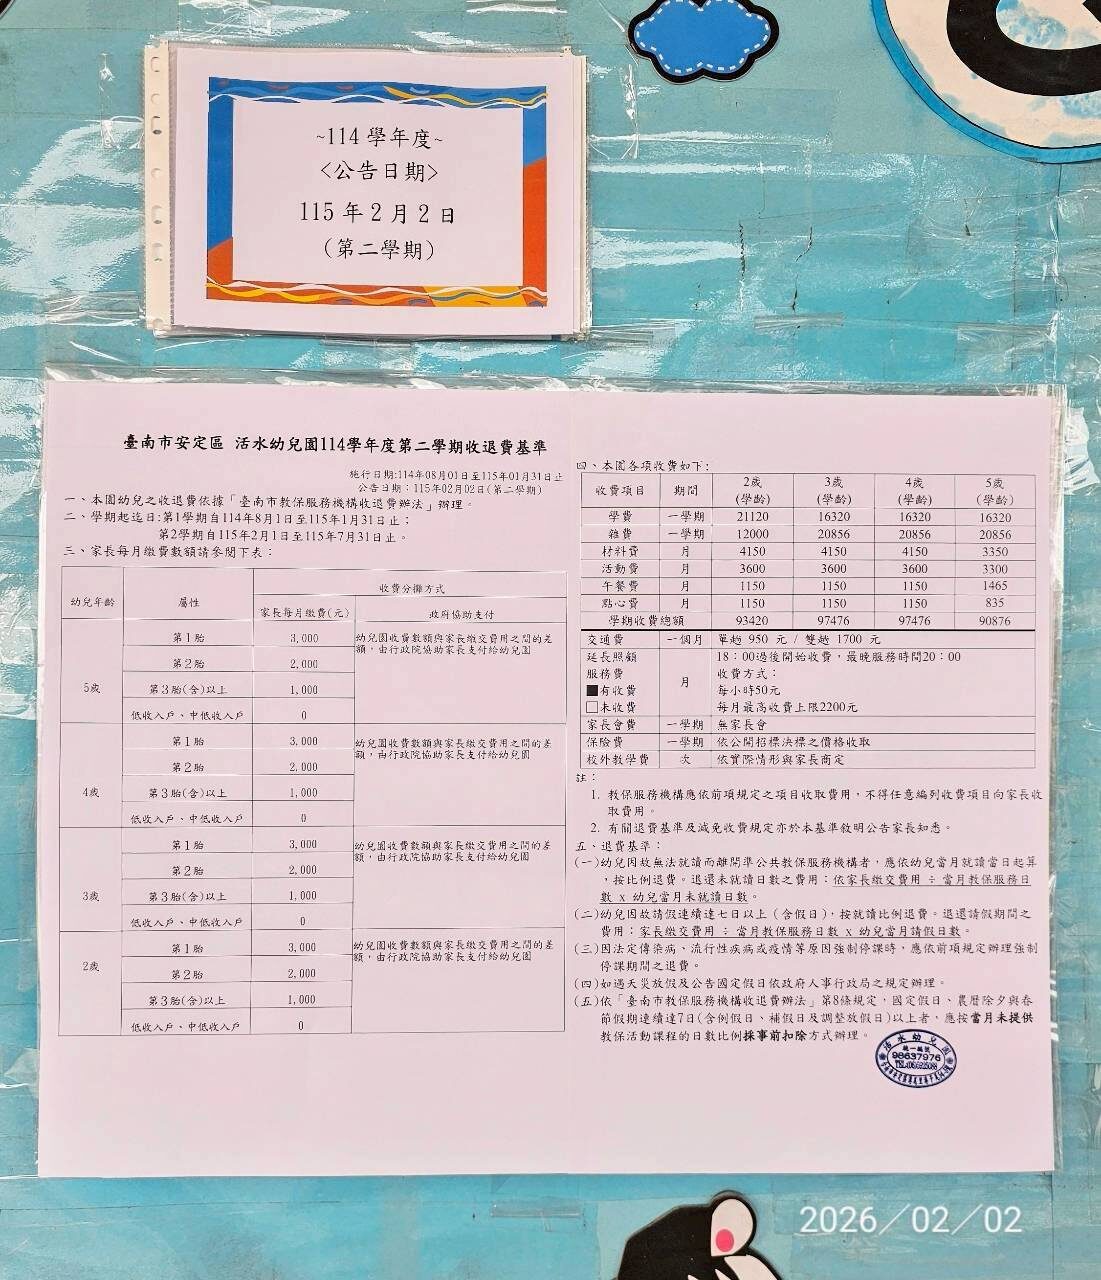 ~114 學年度~
<公告日期>
115 年 2 月 2 日
(第二學期)
臺南市安定區 活水幼兒園114學年度第二學期收退費基準
施行日期:114年08月01日至115年01月31日止
公告日期:115年02月02日(第二學期)
一、本園幼兒之收退費依據「臺南市教保服務機構收退費辦法」辦理。
二、學期起迄日:第1學期自114年8月1日至115年1月31日止;
第2學期自115年2月1日至115年7月31日止。
三、家長每月繳費數額請參閱下表:
幼兒年齡 屬性 收費分攤方式
家長每月繳費(元) 政府協助支付
5歲
第1胎 3,000 幼兒園收費數額與家長繳交費用之間的差
額,由行政院協助家長支付給幼兒園
第2胎 2,000
第3胎(含)以上 1,000
低收入戶、中低收入戶 0
4歲
第1胎 3,000 幼兒園收費數額與家長繳交費用之間的差
額,由行政院協助家長支付給幼兒園
第2胎 2,000
第3胎(含)以上 1,000
低收入戶、中低收入戶 0
3歲
第1胎 3,000 幼兒園收費數額與家長繳交費用之間的差
額,由行政院協助家長支付給幼兒園
第2胎 2,000
第3胎(含)以上 1,000
低收入戶、中低收入戶 0
2歲
第1胎 3,000 幼兒園收費數額與家長繳交費用之間的差
額,由行政院協助家長支付給幼兒園
第2胎 2,000
第3胎(含)以上 1,000
低收入戶、中低收入戶 0
四、本園各項收費如下:
收費項目 期間 2歲(學齡) 3歲(學齡) 4歲(學齡) 5歲(學齡)
學費 一學期 21120 16320 16320 16320
雜費 一學期 12000 20856 20856 20856
材料費 月 4150 4150 4150 3350
活動費 月 3600 3600 3600 3300
午餐費 月 1150 1150 1150 1465
點心費 月 1150 1150 1150 835
學期收費總額 93420 97476 97476 90876
交通費 一個月 單趟 950 元 / 雙趟 1700 元
延長照顧 18:00過後開始收費,最晚服務時間20:00
服務費 月 收費方式:
■有收費 每小時50元
□未收費 每月最高收費上限2200元
家長會費 一學期 無家長會
保險費 一學期 依公開招標決標之價格收取
校外教學費 次 依實際情形與家長商定
註:
1. 教保服務機構應依前項規定之項目收取費用,不得任意編列收費項目向家長收
取費用。
2. 有關退費基準及減免收費規定亦於本基準敘明公告家長知悉。
五、退費基準:
(一)幼兒因故無法就讀而離開準公共教保服務機構者,應依幼兒當月就讀當日起算
,按比例退費。退還未就讀日數之費用:依家長繳交費用 ÷ 當月教保服務日
數 x 幼兒當月未就讀日數。
(二)幼兒因故請假連續達七日以上(含假日),按就讀比例退費。退還請假期間之
費用:家長繳交費用 ÷ 當月教保服務日數 x 幼兒當月請假日數。
(三)因法定傳染病、流行性疾病或疫情等原因強制停課時,應依前項規定辦理強制
停課期間之退費。
(四)如遇天災放假及公告國定假日依政府人事行政局之規定辦理。
(五)依「臺南市教保服務機構收退費辦法」第8條規定,國定假日、農曆除夕與春
節假期連續達7日(含例假日、補假日及調整放假日)以上者,應按當月未提供
教保活動課程的日數比例採事前扣除方式辦理。
活水幼兒園
統一編號
98637976
2026/02/02